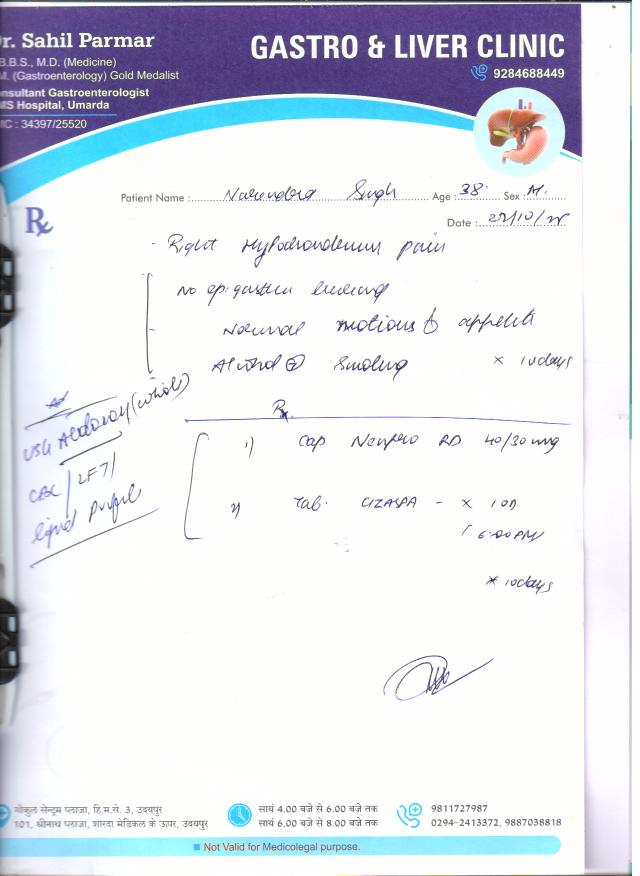 Dr. Sahil Parmar
B.B.S., M.D. (Medicine)
M. (Gastroenterology) Gold Medalist
nsultant Gastroenterologist
MS Hospital, Umarda
MC : 34397/25520
GASTRO & LIVER CLINIC
9284688449
Patient Name : Narendera Singh Age : 38 Sex : M.
Date :
Rx
- Right Hypochondrium pain
No epigastric
Normal motions appetite
Alcohol Smoking × 10days
Adv
USG (whole)
CBC / LFT /
lipid Profile
Rx
1) Cap RD 40/30 mg
Tab. - ×
6:00PM
× 10days
गोकुल सेन्ट्रम प्लाजा, हि.म.से. 3, उदयपुर
101, श्रीनाथ प्लाजा, शारदा मेडिकल के ऊपर, उदयपुर
सायं 4.00 बजे से 6.00 बजे तक
सायं 6.00 बजे से 8.00 बजे तक
9811727987
0294-2413372, 9887038818
Not Valid for Medicolegal purpose.